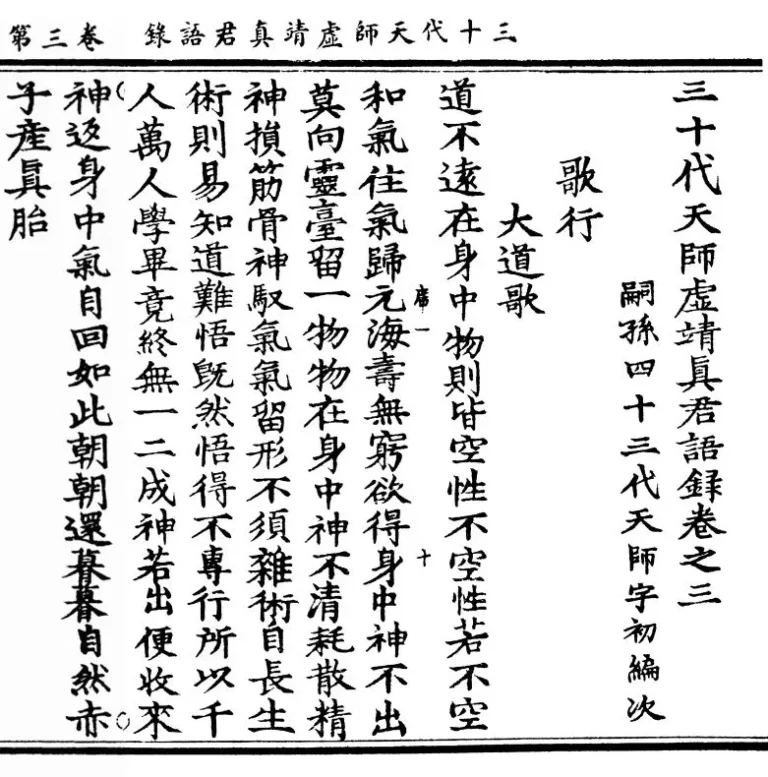 三十代天師虛靖真君語錄 卷三第
三十代天師虛靖眞君語錄卷之三
嗣孫四十三代天師字初編次
歌行
大道歌
道不遠在身中物則皆空性不空性若不空
席一 十
和氣往氣歸元海壽無窮欲得身中神不出
莫向靈臺留一物物在身中神不清耗散精
神損筋骨神馭氣氣留形不須雜術自長生
術則易知道難悟既然悟得不專行所以千
人萬人學畢竟終無一二成神若出便收來
神返身中氣自回如此朝朝還暮暮自然赤
子產眞胎